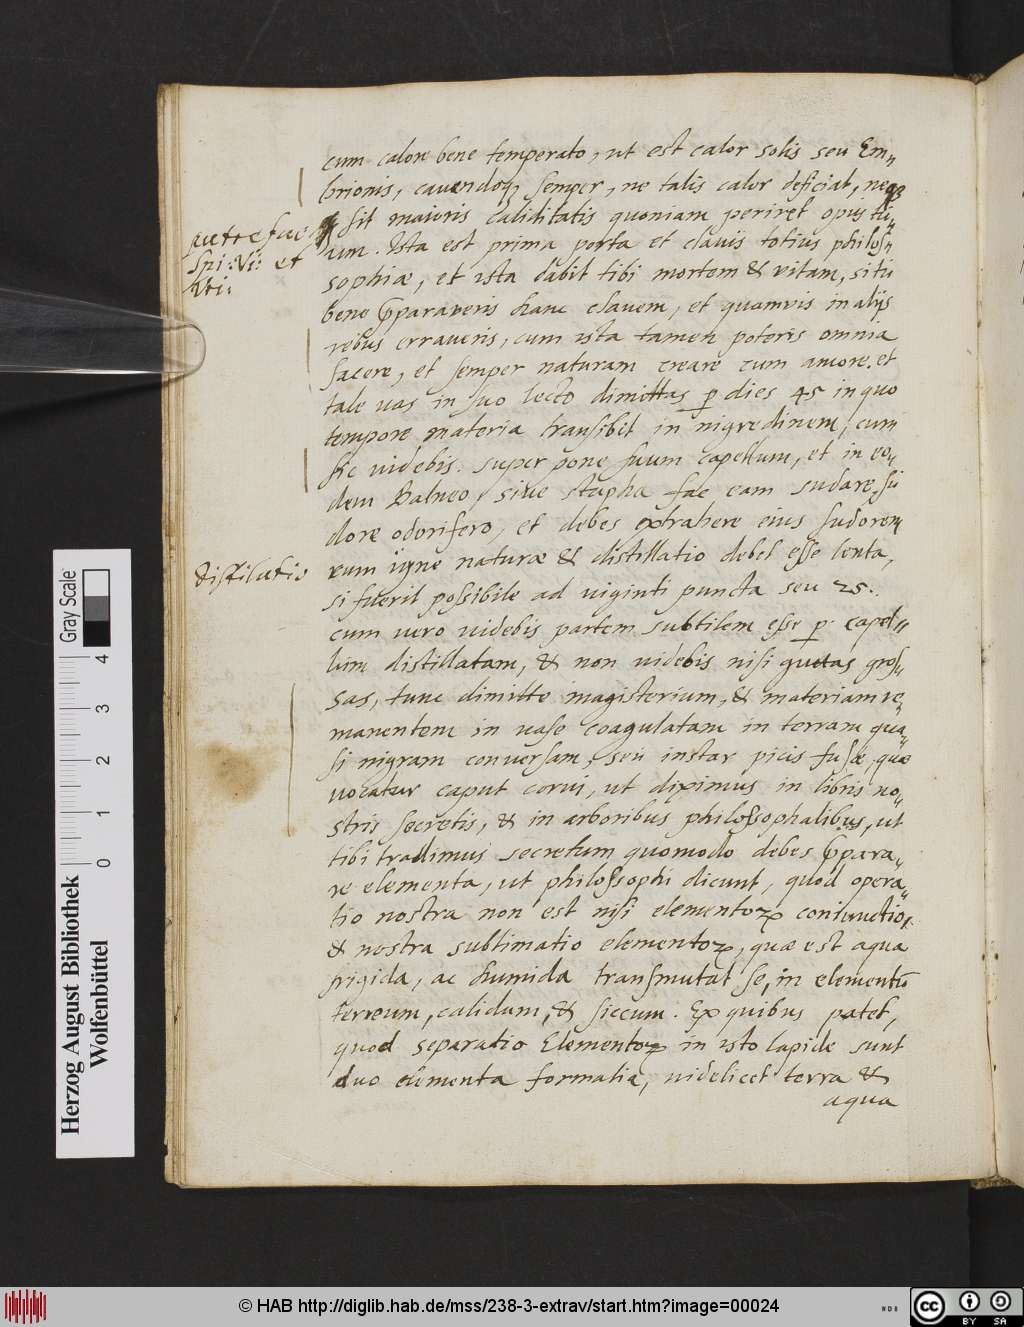 cum calore bene temperato, ut est calor solis seu Em„
brionis, cavendoq; semper, ne talis calor deficiat, neq3
sit maioris caliditatis quoniam periret opus tu„
um. Ista est prima porta et clavis totius philos„
sophiæ, et ista dabit tibi mortem & vitam, si tu
bene p̄paraveris hanc clavem, et quamvis in alijs
rebus erraveris, cum ista tamen poteris omnia
facere, et semper naturam creare cum amore. et
tale vas in suo lecto dimittas p dies 45 in quo
tempore materia transibit in nigredinem, cum
sic videbis. super pone suum capellum, et in eo„
dem Balneo, sive stupha fac eam sudare su
dore odorifero, et debes extrahere eius sudorem
cum igne naturæ & distillatio debet esse lenta,
si fuerit possibile ad viginti puncta seu 25.
cum vero videbis partem subtilem esse p. capel„
lum distillatam, & non videbis nisi guttas gros„
sas, tunc dimitte magisterium, & materiam re„
manentem in vase coagulatam in terram qua„
si nigram conversam, seu instar picis fusæ, quæ
vocatur caput corvi, ut diximus in libris no„
stris secretis, & in arboribus philossophalibus, ut
tibi tradimus secretum quomodo debes p̄para„
re elementa, ut philossophi dicunt, quod opera„
tio nostra non est nisi elementoꝝ coniunctio,
& nostra sublimatio elementoꝝ, quæ est aqua
frigida, ac humida transmutat se, in elementū
terreum, calidum, & siccum. Ex quibus patet,
quod separatio Elementoꝝ in isto lapide sunt
duo elementa formatia, videlicet terra &
aqua
putrefac
Spi: Vi: et
Distilatio
Herzog August Bibliothek
Wolfenbüttel
0 1 2 3 4
Gray Scale
© HAB http://diglib.hab.de/mss/238-3-extrav/start.htm?image=00024
cc BY SA